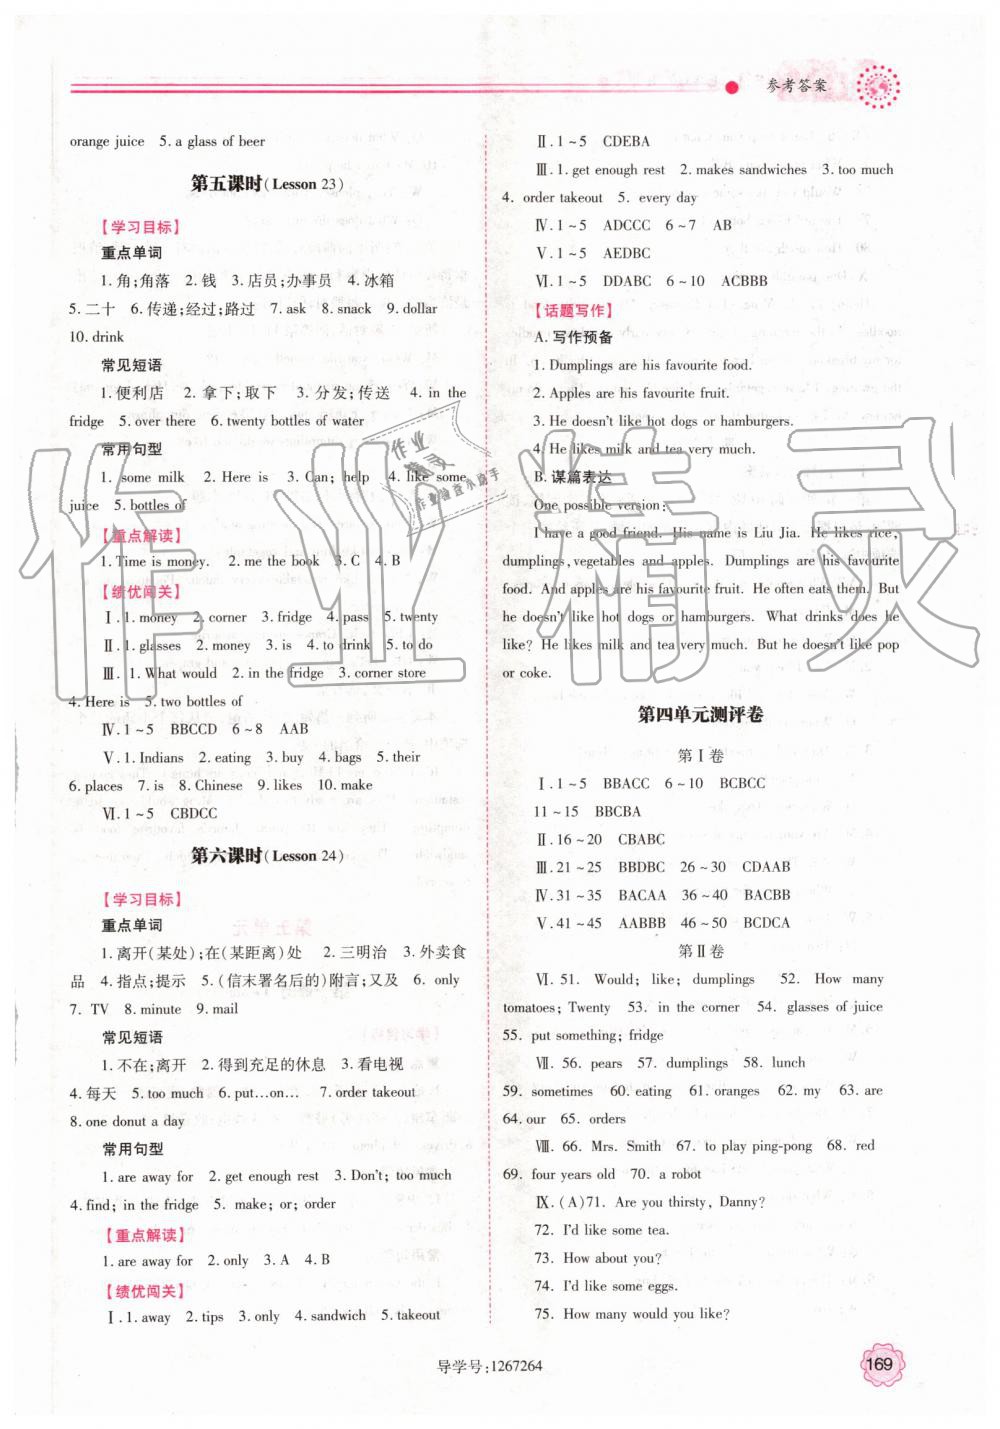 参考答案
orange juice 5. a glass of beer
第五课时(Lesson 23)
【学习目标】
重点单词
1. 角;角落 2. 钱 3. 店员;办事员 4. 冰箱
5. 二十 6. 传递;经过;路过 7. ask 8. snack 9. dollar
10. drink
常见短语
1. 便利店 2. 拿下;取下 3. 分发;传送 4. in the
fridge 5. over there 6. twenty bottles of water
常用句型
1. some milk 2. Here is 3. Can; help 4. like some
juice 5. bottles of
【重点解读】
1. Time is money. 2. me the book 3. C 4. B
【绩优闯关】
Ⅰ. 1. money 2. corner 3. fridge 4. pass 5. twenty
Ⅱ. 1. glasses 2. money 3. is 4. to drink 5. to do
Ⅲ. 1. What would 2. in the fridge 3. corner store
4. Here is 5. two bottles of
Ⅳ. 1~5 BBCCD 6~8 AAB
Ⅴ. 1. Indians 2. eating 3. buy 4. bags 5. their
6. places 7. is 8. Chinese 9. likes 10. make
Ⅵ. 1~5 CBDCC
第六课时(Lesson 24)
【学习目标】
重点单词
1. 离开(某处);在(某距离)处 2. 三明治 3. 外卖食
品 4. 指点;提示 5. (信末署名后的)附言;又及 6. only
7. TV 8. minute 9. mail
常见短语
1. 不在;离开 2. 得到充足的休息 3. 看电视
4. 每天 5. too much 6. put…on… 7. order takeout
8. one donut a day
常用句型
1. are away for 2. get enough rest 3. Don't; too much
4. find; in the fridge 5. make; or; order
【重点解读】
1. are away for 2. only 3. A 4. B
【绩优闯关】
Ⅰ. 1. away 2. tips 3. only 4. sandwich 5. takeout
Ⅱ. 1~5 CDEBA
Ⅲ. 1. get enough rest 2. makes sandwiches 3. too much
4. order takeout 5. every day
Ⅳ. 1~5 ADCCC 6~7 AB
Ⅴ. 1~5 AEDBC
Ⅵ. 1~5 DDABC 6~10 ACBBB
【话题写作】
A. 写作预备
1. Dumplings are his favourite food.
2. Apples are his favourite fruit.
3. He doesn't like hot dogs or hamburgers.
4. He likes milk and tea very much.
B. 谋篇表达
One possible version:
I have a good friend. His name is Liu Jia. He likes rice,
dumplings, vegetables and apples. Dumplings are his favourite
food. And apples are his favourite fruit. He often eats them. But
he doesn't like hot dogs or hamburgers. What drinks does he
like? He likes milk and tea very much. But he doesn't like pop
or coke.
第四单元测评卷
第Ⅰ卷
Ⅰ. 1~5 BBACC 6~10 BCBCC
11~15 BBCBA
Ⅱ. 16~20 CBABC
Ⅲ. 21~25 BBDBC 26~30 CDAAB
Ⅳ. 31~35 BACAA 36~40 BACBB
Ⅴ. 41~45 AABBB 46~50 BCDCA
第Ⅱ卷
Ⅵ. 51. Would; like; dumplings 52. How many
tomatoes; Twenty 53. in the corner 54. glasses of juice
55. put something; fridge
Ⅶ. 56. pears 57. dumplings 58. lunch
59. sometimes 60. eating 61. oranges 62. my 63. are
64. our 65. orders
Ⅷ. 66. Mrs. Smith 67. to play ping-pong 68. red
69. four years old 70. a robot
Ⅸ. (A)71. Are you thirsty, Danny?
72. I'd like some tea.
73. How about you?
74. I'd like some eggs.
75. How many would you like?
导学号:1267264
169
作业精灵
作业精灵
作业检查小助手